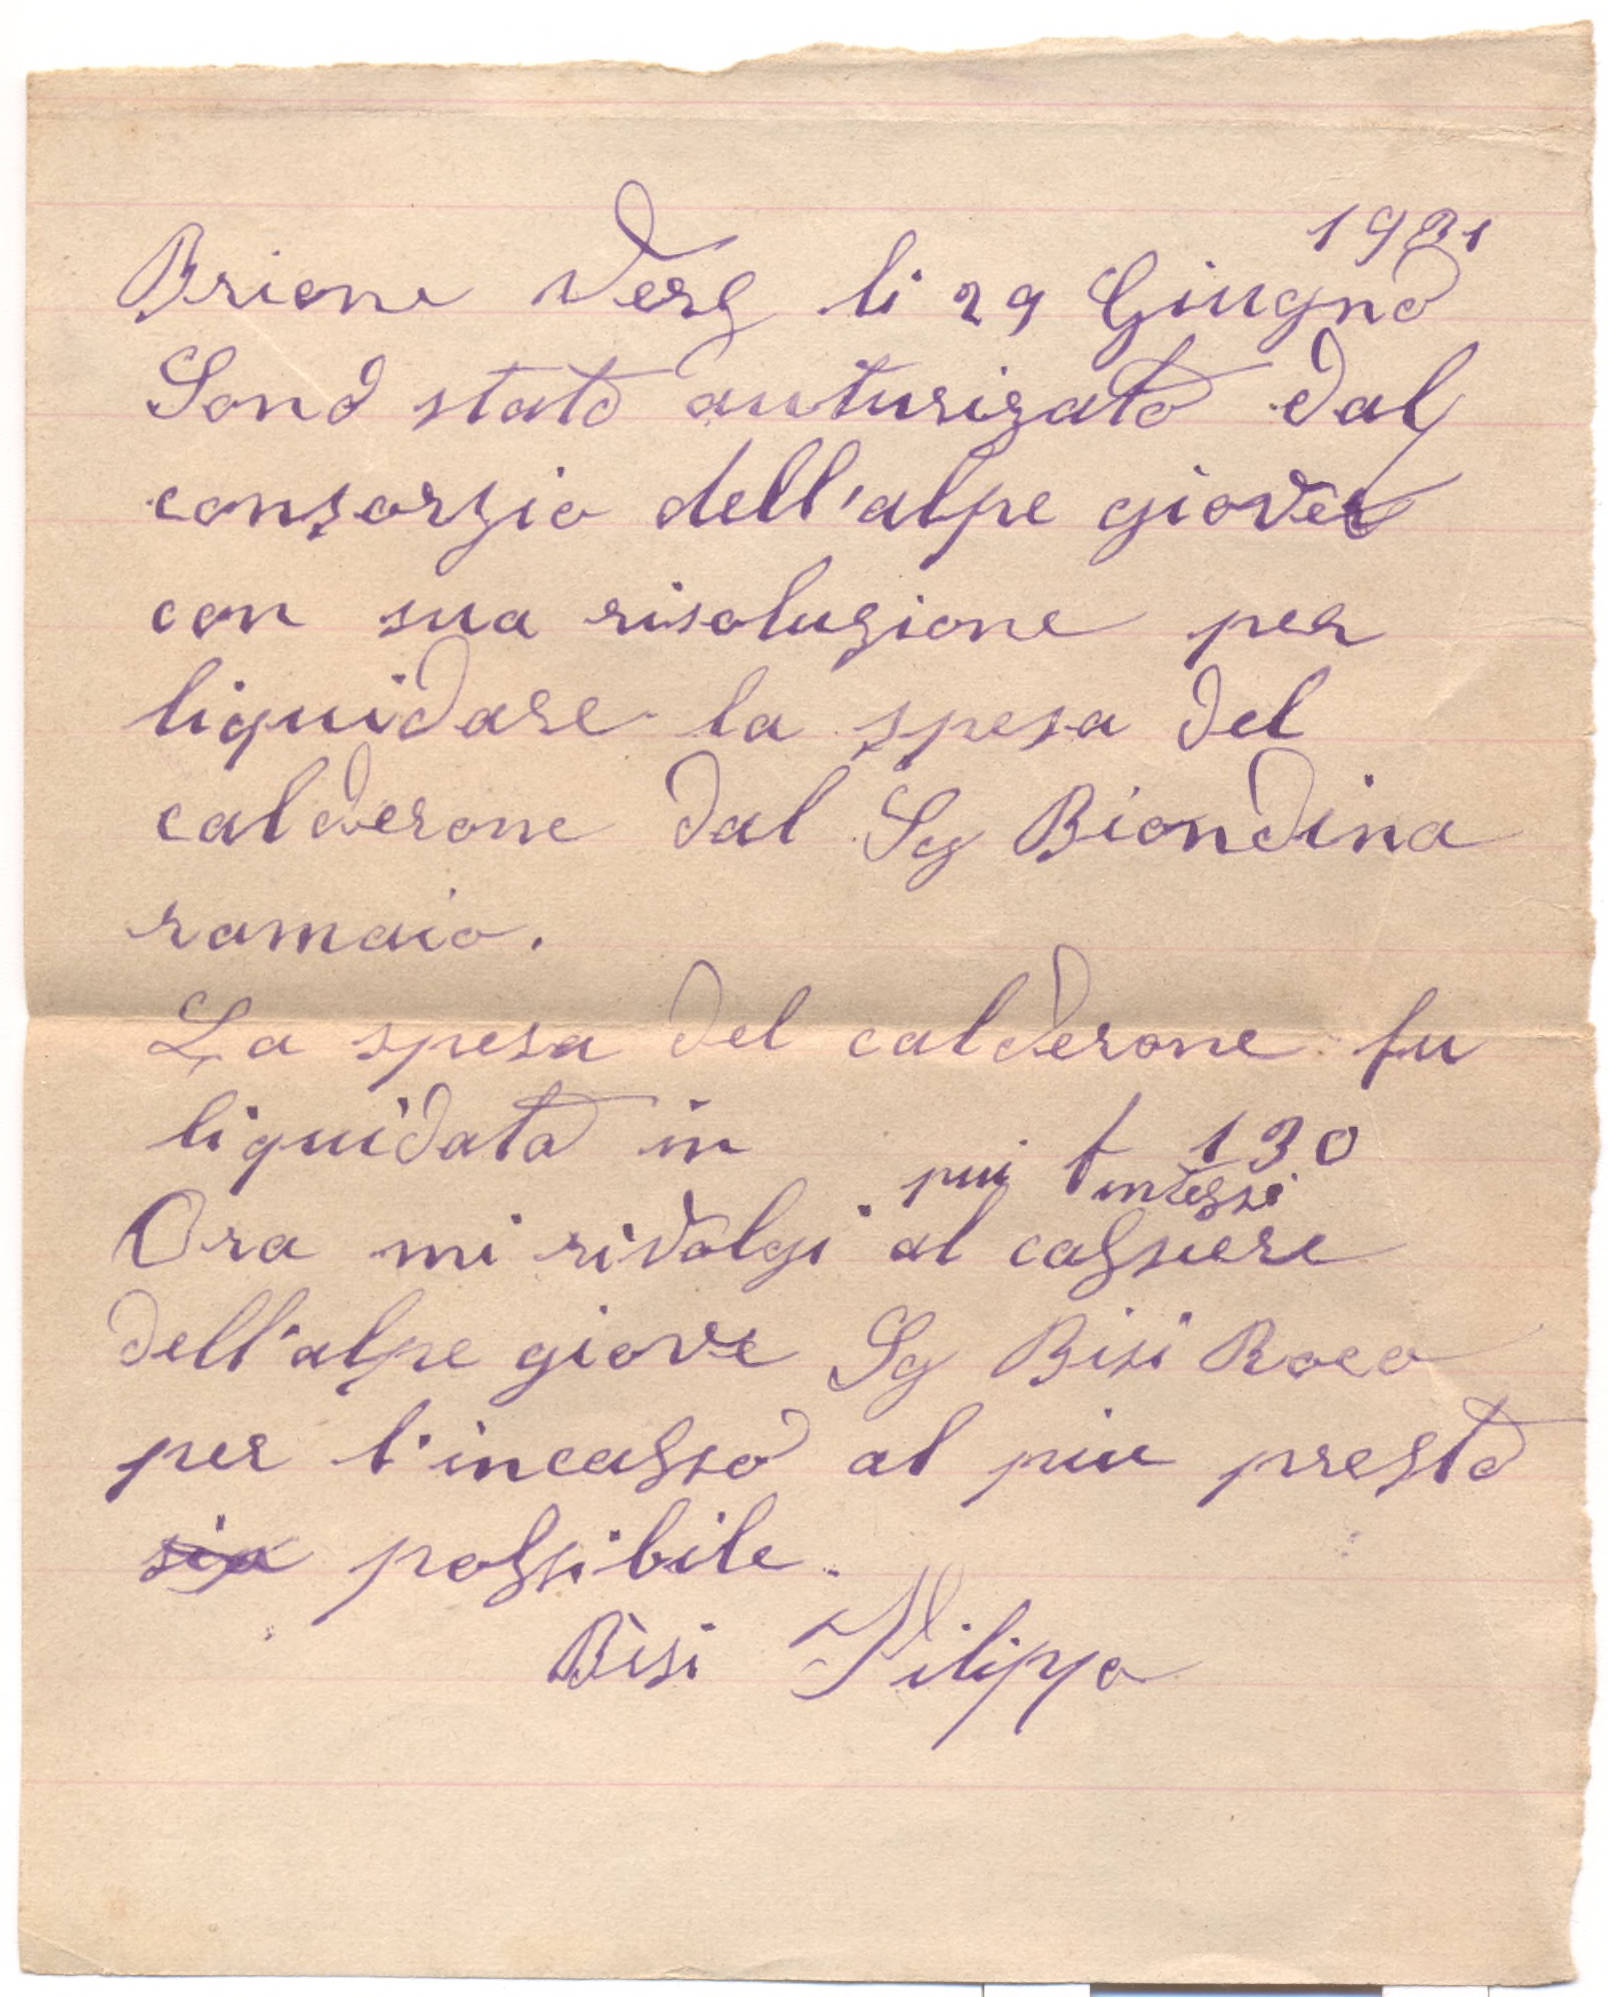 1921
Brione Verz li 29 Giugno
Sono stato auturizato dal
consorzio dell'alpe giove
con sua risoluzione per
liquidare la spesa del
calderone dal Sg Biondina
ramaio.
La spesa del calderone fu
liquidata in f 130
piu
Ora mi rivolgi al cassiere
dell'alpe giove Sg Bisi Roco
per l'incasso al piu presto
sia possibile.
Bisi Filippo